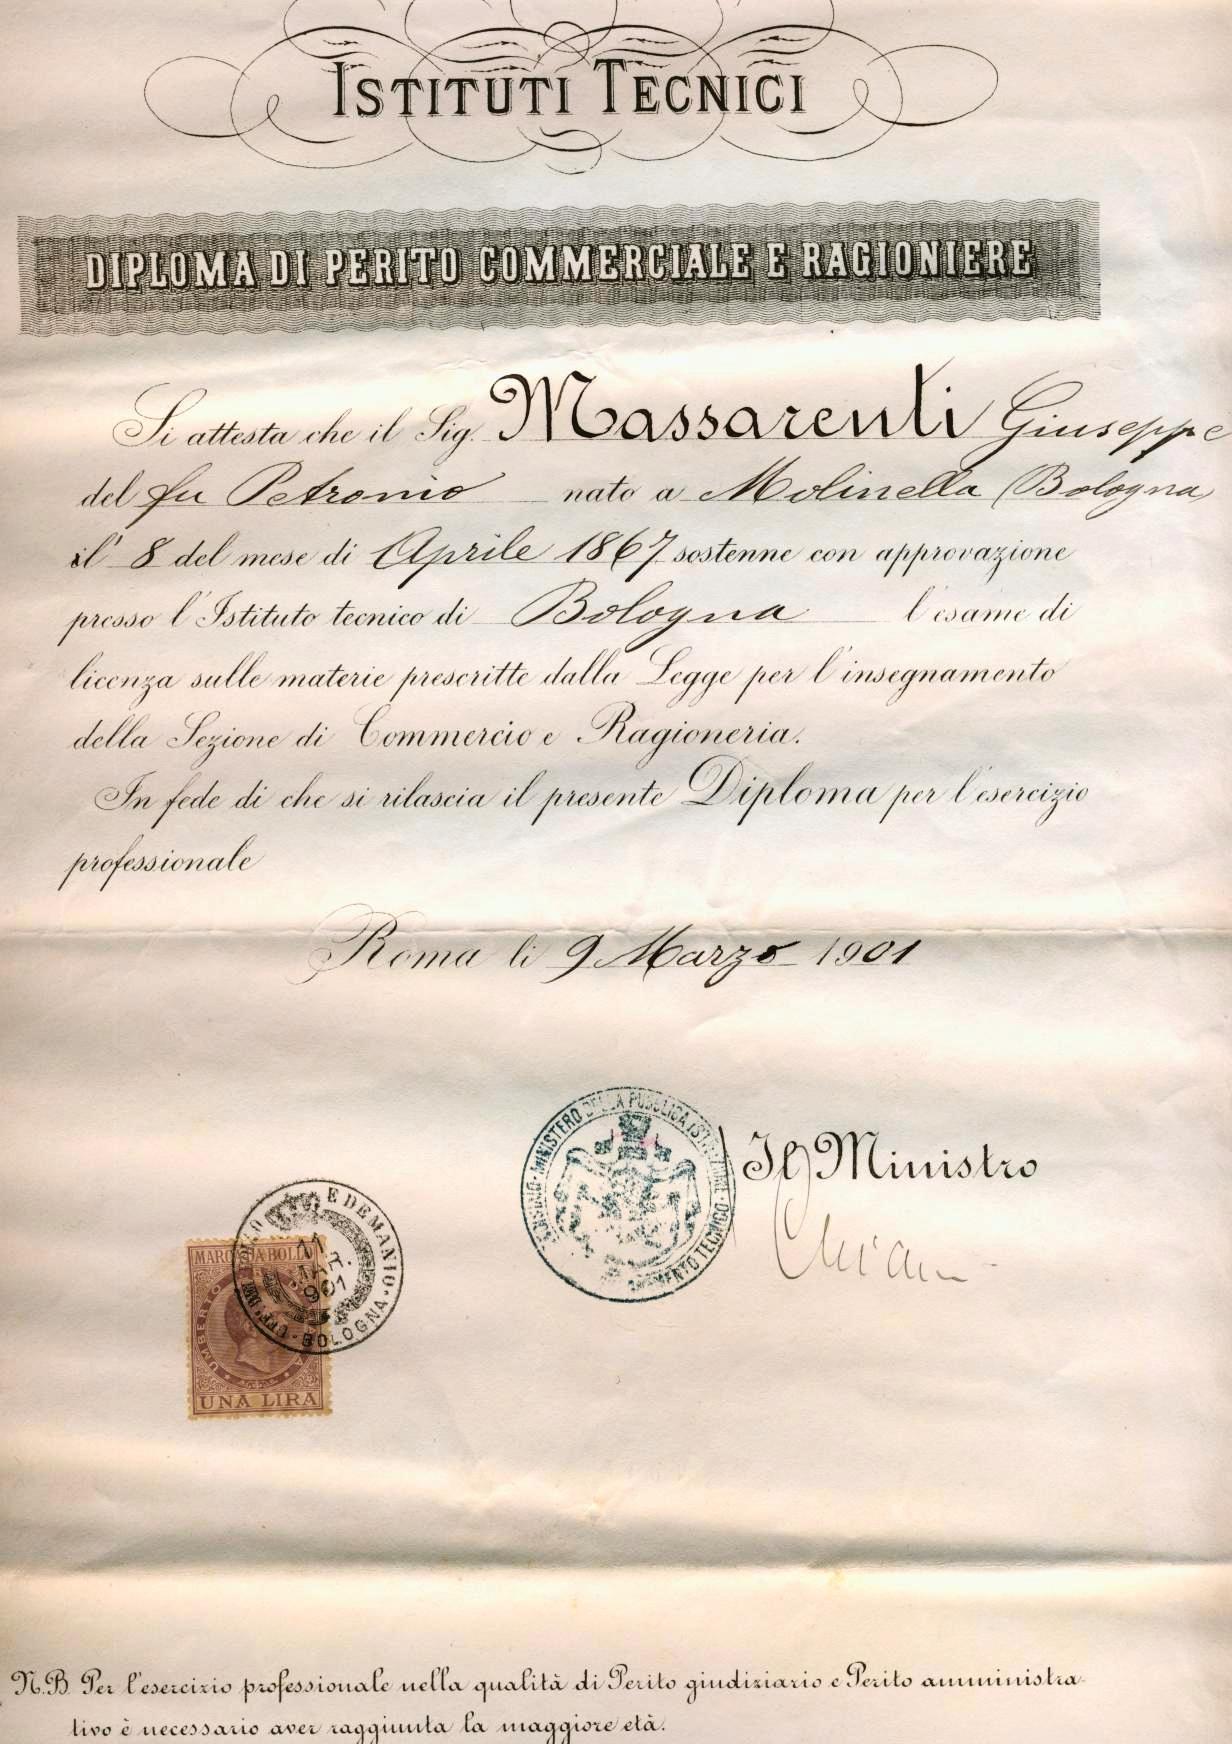 ISTITUTI TECNICI
DIPLOMA DI PERITO COMMERCIALE E RAGIONIERE
Si attesta che il Sig. Massarenti Giuseppe
del fu Petronio nato a Molinella (Bologna)
il 8 del mese di Aprile 1867 sostenne con approvazione
presso l'Istituto tecnico di Bologna l'esame di
licenza sulle materie prescritte dalla Legge per l'insegnamento
della Sezione di Commercio e Ragioneria.
In fede di che si rilascia il presente Diploma per l'esercizio
professionale
Roma li 9 Marzo 1901
MINISTERO DELLA PUBBLICA ISTRUZIONE
TECNICO
Il Ministro
E DEMANIO
BOLOGNA
11
MAR.
901
MARCA DA BOLLO
UMBERTO
UNA LIRA
N.B. Per l'esercizio professionale nella qualità di Perito giudiziario e Perito amministra-
tivo è necessario aver raggiunta la maggiore età.